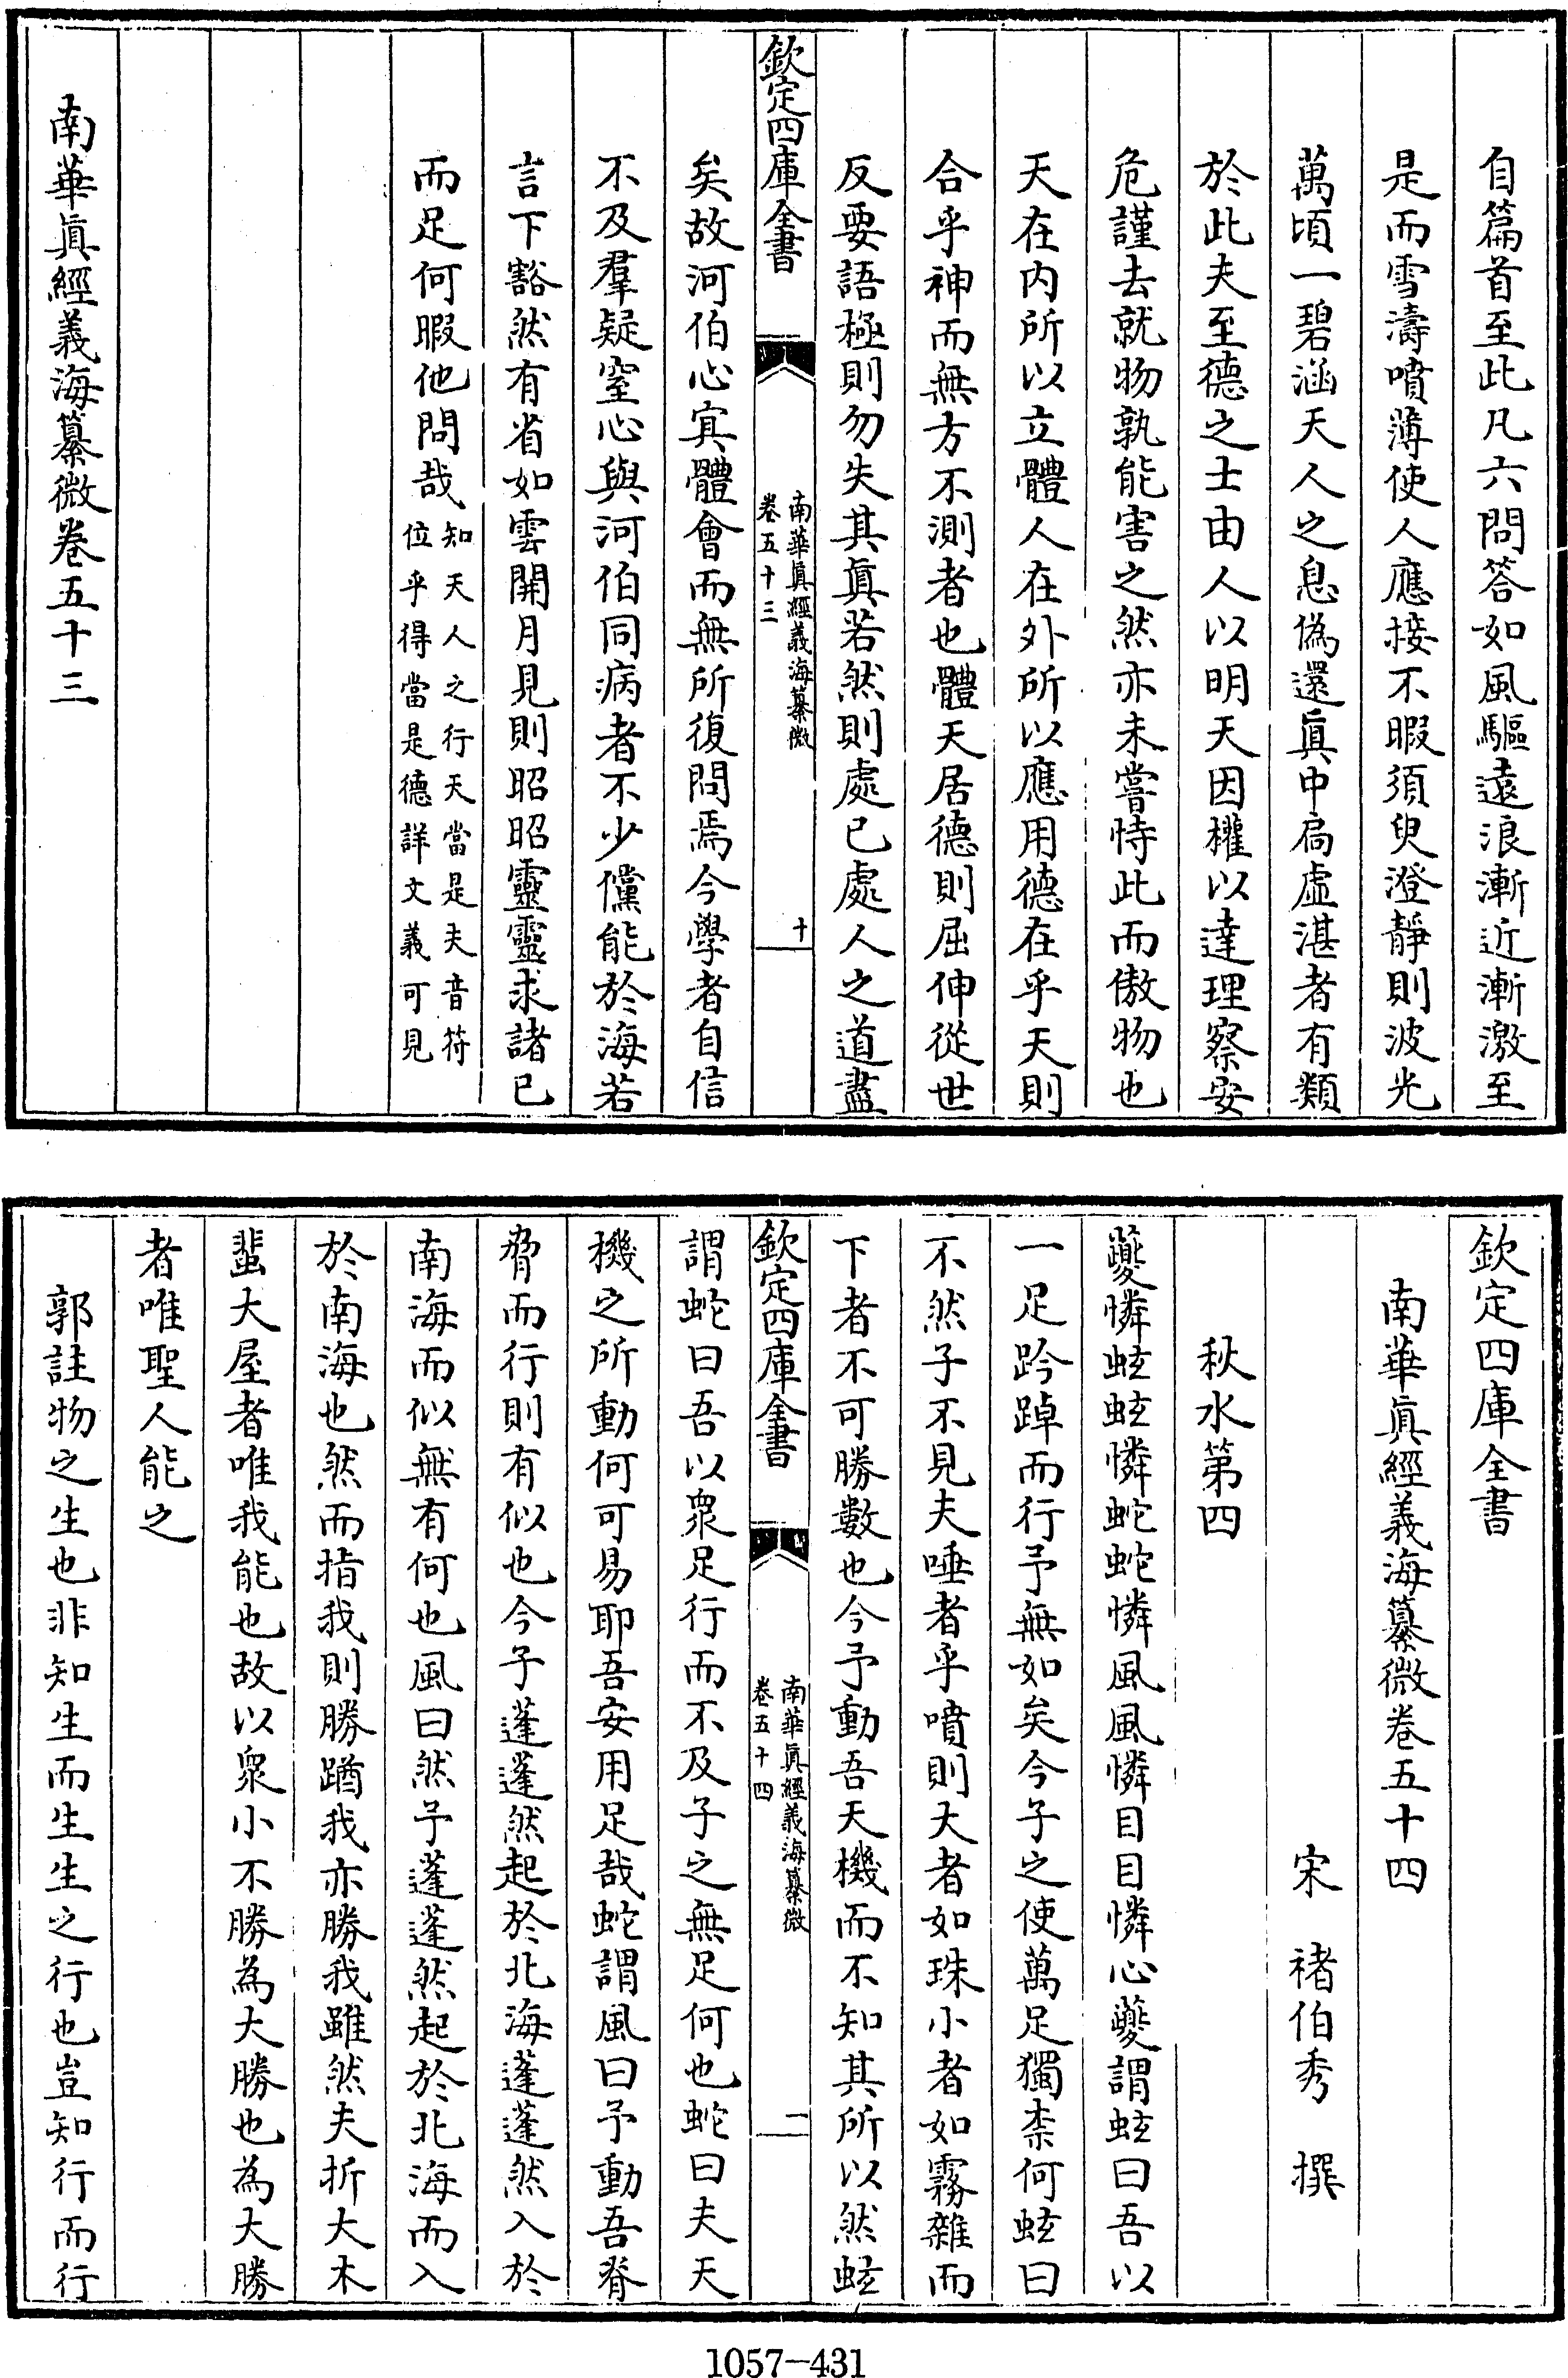 自篇首至此凡六問答如風驅遠浪漸近漸激至
是而雪濤噴薄使人應接不暇須臾澄靜則波光
萬頃一碧涵天人之息偽還眞中扃虛湛者有類
於此夫至德之士由人以明天因權以達理察安
危謹去就物孰能害之然亦未嘗恃此而傲物也
天在内所以立體人在外所以應用德在乎天則
合乎神而無方不測者也體天居德則屈伸從世
反要語極則勿失其眞若然則處已處人之道盡
欽定四庫全書
南華眞經義海纂微
卷五十三
十
矣故河伯心㝠體會而無所復問焉今學者自信
不及羣疑窒心與河伯同病者不少儻能於海若
言下豁然有省如雲開月見則昭昭靈靈求諸已
而足何暇他問哉知天人之行天當是夫音符
位乎得當是德詳文義可見
南華眞經義海纂微卷五十三
欽定四庫全書
南華眞經義海纂微卷五十四
宋 褚伯秀 撰
秋水第四
夔憐蚿蚿憐蛇蛇憐風風憐目目憐心夔謂蚿曰吾以
一足跉踔而行予無如矣今子之使萬足獨柰何蚿曰
不然子不見夫唾者乎噴則大者如珠小者如霧雜而
下者不可勝數也今予動吾天機而不知其所以然蚿
欽定四庫全書
南華眞經義海纂微
卷五十四
一
謂蛇曰吾以衆足行而不及子之無足何也蛇曰夫天
機之所動何可易耶吾安用足哉蛇謂風曰予動吾脊
脅而行則有似也今子蓬蓬然起於北海蓬蓬然入於
南海而似無有何也風曰然予蓬蓬然起於北海而入
於南海也然而指我則勝蹈我亦勝我雖然夫折大木
蜚大屋者唯我能也故以衆小不勝為大勝也為大勝
者唯聖人能之
郭註物之生也非知生而生生之行也豈知行而行
1057-431